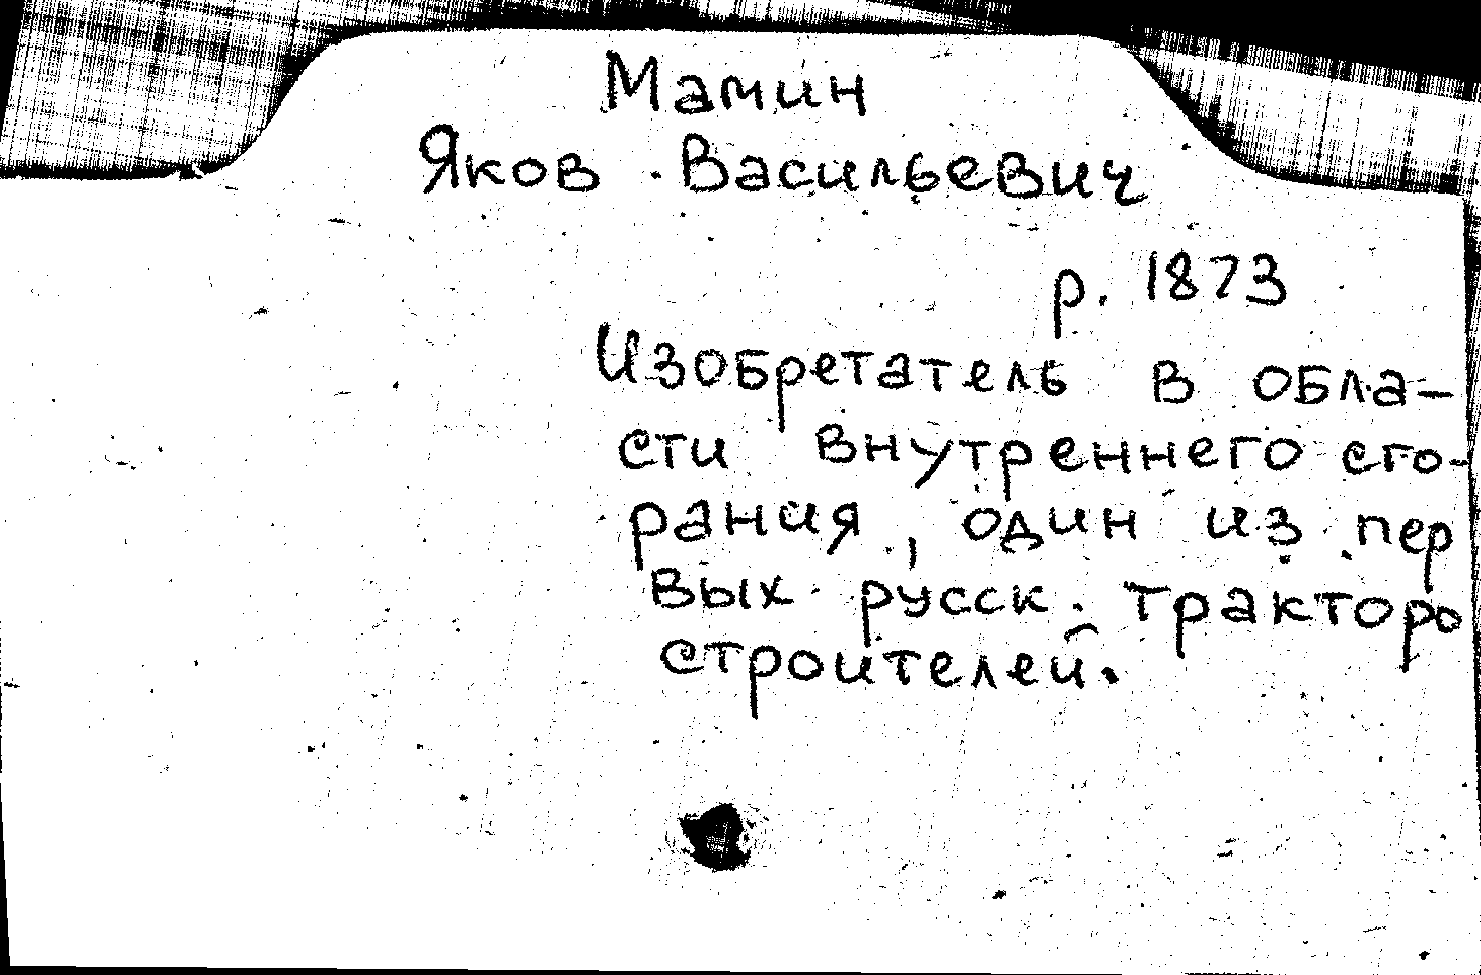 Мамин
Яков Васильевич
р. 1873
Изобретатель в обла-
сти внутреннего сго-
рания, один из пер
вых русск. тракторо
строителей.